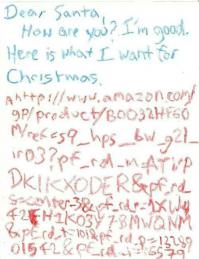 Dear Santa,
How are you? I'm good.
Here is what I want for
Christmas.
http://www.amazon.com/
gp/product/B0032HF60
M/ref=s9_hps_bw_g21_
ir03?pf_rd_m=ATVP
DKIKX0DER&pf_rd_
s=center-3&pf_rd_r=1XWY
42EH1K03Y7BMWQNM
&pf_rd_t=101&pf_rd_p=
01542&pf_rd_i=